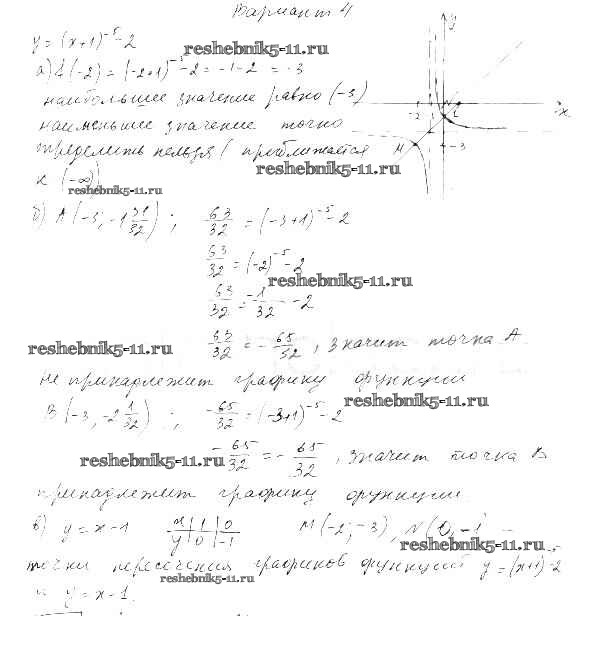 Вариант 4
y = (x+1)^-5 - 2
reshebnik5-11.ru
а) f(-2) = (-2+1)^-5 - 2 = -1 - 2 = -3
наибольшее значение равно (-3)
наименьшее значение точно
определить нельзя (приближается
reshebnik5-11.ru
к (-∞))
reshebnik5-11.ru
y
x
-2
-3
M
N
б) A(-3; -1 31/32) ; 63/32 = (-3+1)^-5 - 2
63/32 = (-2)^-5 - 2
reshebnik5-11.ru
63/32 = -1/32 - 2
reshebnik5-11.ru
63/32 = -65/32, значит точка A
не принадлежит графику функции
reshebnik5-11.ru
B(-3; -2 1/32) ; -65/32 = (-3+1)^-5 - 2
reshebnik5-11.ru
-65/32 = -65/32, значит точка B
принадлежит графику функции.
в) y = x-1 x 1 0 M(-2; -3), N(0; -1) -
y 0 -1
reshebnik5-11.ru
точки пересечения графиков функций y = (x+1)^-5 - 2
reshebnik5-11.ru
и y = x-1.